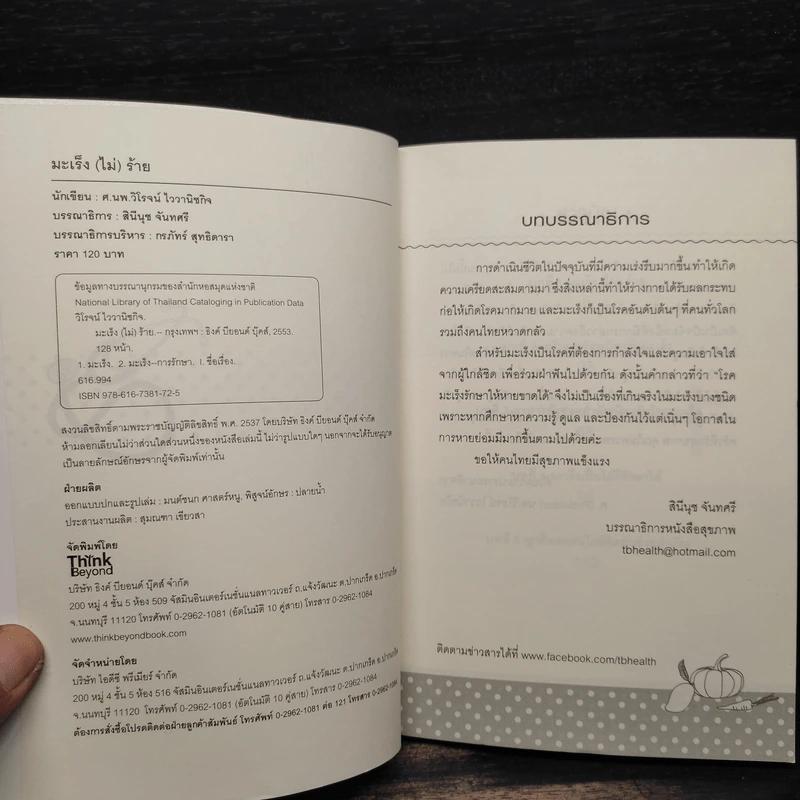 มะเร็ง (ไม่) ร้าย
นักเขียน : ศ.นพ.วิโรจน์ ไววานิชกิจ
บรรณาธิการ : สินีนุช จันทศรี
บรรณาธิการบริหาร : กรภัทร์ สุทธิดารา
ราคา 120 บาท
ข้อมูลทางบรรณานุกรมของสำนักหอสมุดแห่งชาติ
National Library of Thailand Cataloging in Publication Data
วิโรจน์ ไววานิชกิจ.
มะเร็ง (ไม่) ร้าย.-- กรุงเทพฯ : ธิงค์ บียอนด์ บุ๊คส์, 2553.
128 หน้า.
1. มะเร็ง. 2. มะเร็ง--การรักษา. I. ชื่อเรื่อง.
616.994
ISBN 978-616-7381-72-5
สงวนลิขสิทธิ์ตามพระราชบัญญัติลิขสิทธิ์ พ.ศ. 2537 โดยบริษัท ธิงค์ บียอนด์ บุ๊คส์ จำกัด
ห้ามลอกเลียนไม่ว่าส่วนใดส่วนหนึ่งของหนังสือเล่มนี้ ไม่ว่ารูปแบบใดๆ นอกจากจะได้รับอนุญาต
เป็นลายลักษณ์อักษรจากผู้จัดพิมพ์เท่านั้น
ฝ่ายผลิต
ออกแบบปกและรูปเล่ม : มนต์ชนก ศาสตร์หนู, พิสูจน์อักษร : ปลายน้ำ
ประสานงานผลิต : สุมณฑา เขียวสา
จัดพิมพ์โดย
Think
Beyond
บริษัท ธิงค์ บียอนด์ บุ๊คส์ จำกัด
200 หมู่ 4 ชั้น 5 ห้อง 509 จัสมินอินเตอร์เนชั่นแนลทาวเวอร์ ถ.แจ้งวัฒนะ ต.ปากเกร็ด อ.ปากเกร็ด
จ.นนทบุรี 11120 โทรศัพท์ 0-2962-1081 (อัตโนมัติ 10 คู่สาย) โทรสาร 0-2962-1084
www.thinkbeyondbook.com
จัดจำหน่ายโดย
บริษัท ไอดีซี พรีเมียร์ จำกัด
200 หมู่ 4 ชั้น 5 ห้อง 516 จัสมินอินเตอร์เนชั่นแนลทาวเวอร์ ถ.แจ้งวัฒนะ ต.ปากเกร็ด อ.ปากเกร็ด
จ.นนทบุรี 11120 โทรศัพท์ 0-2962-1081 (อัตโนมัติ 10 คู่สาย) โทรสาร 0-2962-1084
ต้องการสั่งซื้อโปรดติดต่อฝ่ายลูกค้าสัมพันธ์ โทรศัพท์ 0-2962-1081 ต่อ 121 โทรสาร 0-2962-1084
บทบรรณาธิการ
การดำเนินชีวิตในปัจจุบันที่มีความเร่งรีบมากขึ้น ทำให้เกิด
ความเครียดสะสมตามมา ซึ่งสิ่งเหล่านี้ทำให้ร่างกายได้รับผลกระทบ
ก่อให้เกิดโรคมากมาย และมะเร็งก็เป็นโรคอันดับต้นๆ ที่คนทั่วโลก
รวมถึงคนไทยหวาดกลัว
สำหรับมะเร็งเป็นโรคที่ต้องการกำลังใจและความเอาใจใส่
จากผู้ใกล้ชิด เพื่อร่วมฝ่าฟันไปด้วยกัน ดังนั้นคำกล่าวที่ว่า "โรค
มะเร็งรักษาให้หายขาดได้" จึงไม่เป็นเรื่องที่เกินจริงในมะเร็งบางชนิด
เพราะหากศึกษาหาความรู้ ดูแล และป้องกันไว้แต่เนิ่นๆ โอกาสใน
การหายย่อมมีมากขึ้นตามไปด้วยค่ะ
ขอให้คนไทยมีสุขภาพแข็งแรง
สินีนุช จันทศรี
บรรณาธิการหนังสือสุขภาพ
tbhealth@hotmail.com
ติดตามข่าวสารได้ที่ www.facebook.com/tbhealth